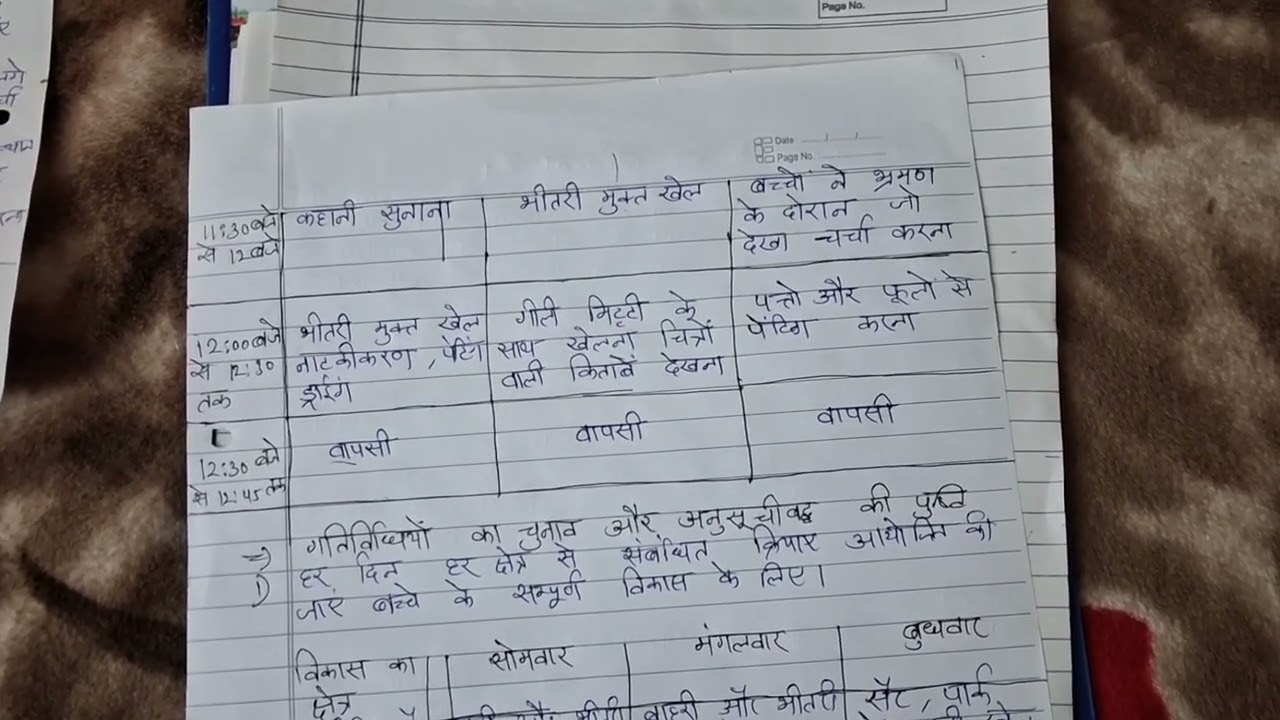 Page No.
Date
Page No.
11:30 बजे से 12 बजे
कहानी सुनाना
भीतरी मुक्त खेल
बच्चों ने भ्रमण
के दोरान जो
देखा चर्चा करना
12:00 बजे
से 12:30
तक
भीतरी मुक्त खेल
नाटकीकरण , पेंटिंग
ड्राईंग
गीली मिट्टी के
साथ खेलना चित्रों
वाली किताबें देखना
पत्तो और फूलों से
पेंटिंग करना
12:30 बजे
से 12:45 तक
वापसी
वापसी
वापसी
=)
गतिविधियों का चुनाव और अनुसूचीबद्ध की पुष्टि
1) हर दिन हर क्षेत्र से संबंधित आयोजित की
जाएं बच्चे के सम्पूर्ण विकास के लिए।
विकास का
क्षेत्र
सोमवार
मंगलवार
बुधवार
बाहरी और भीतरी
सैट , पार्क